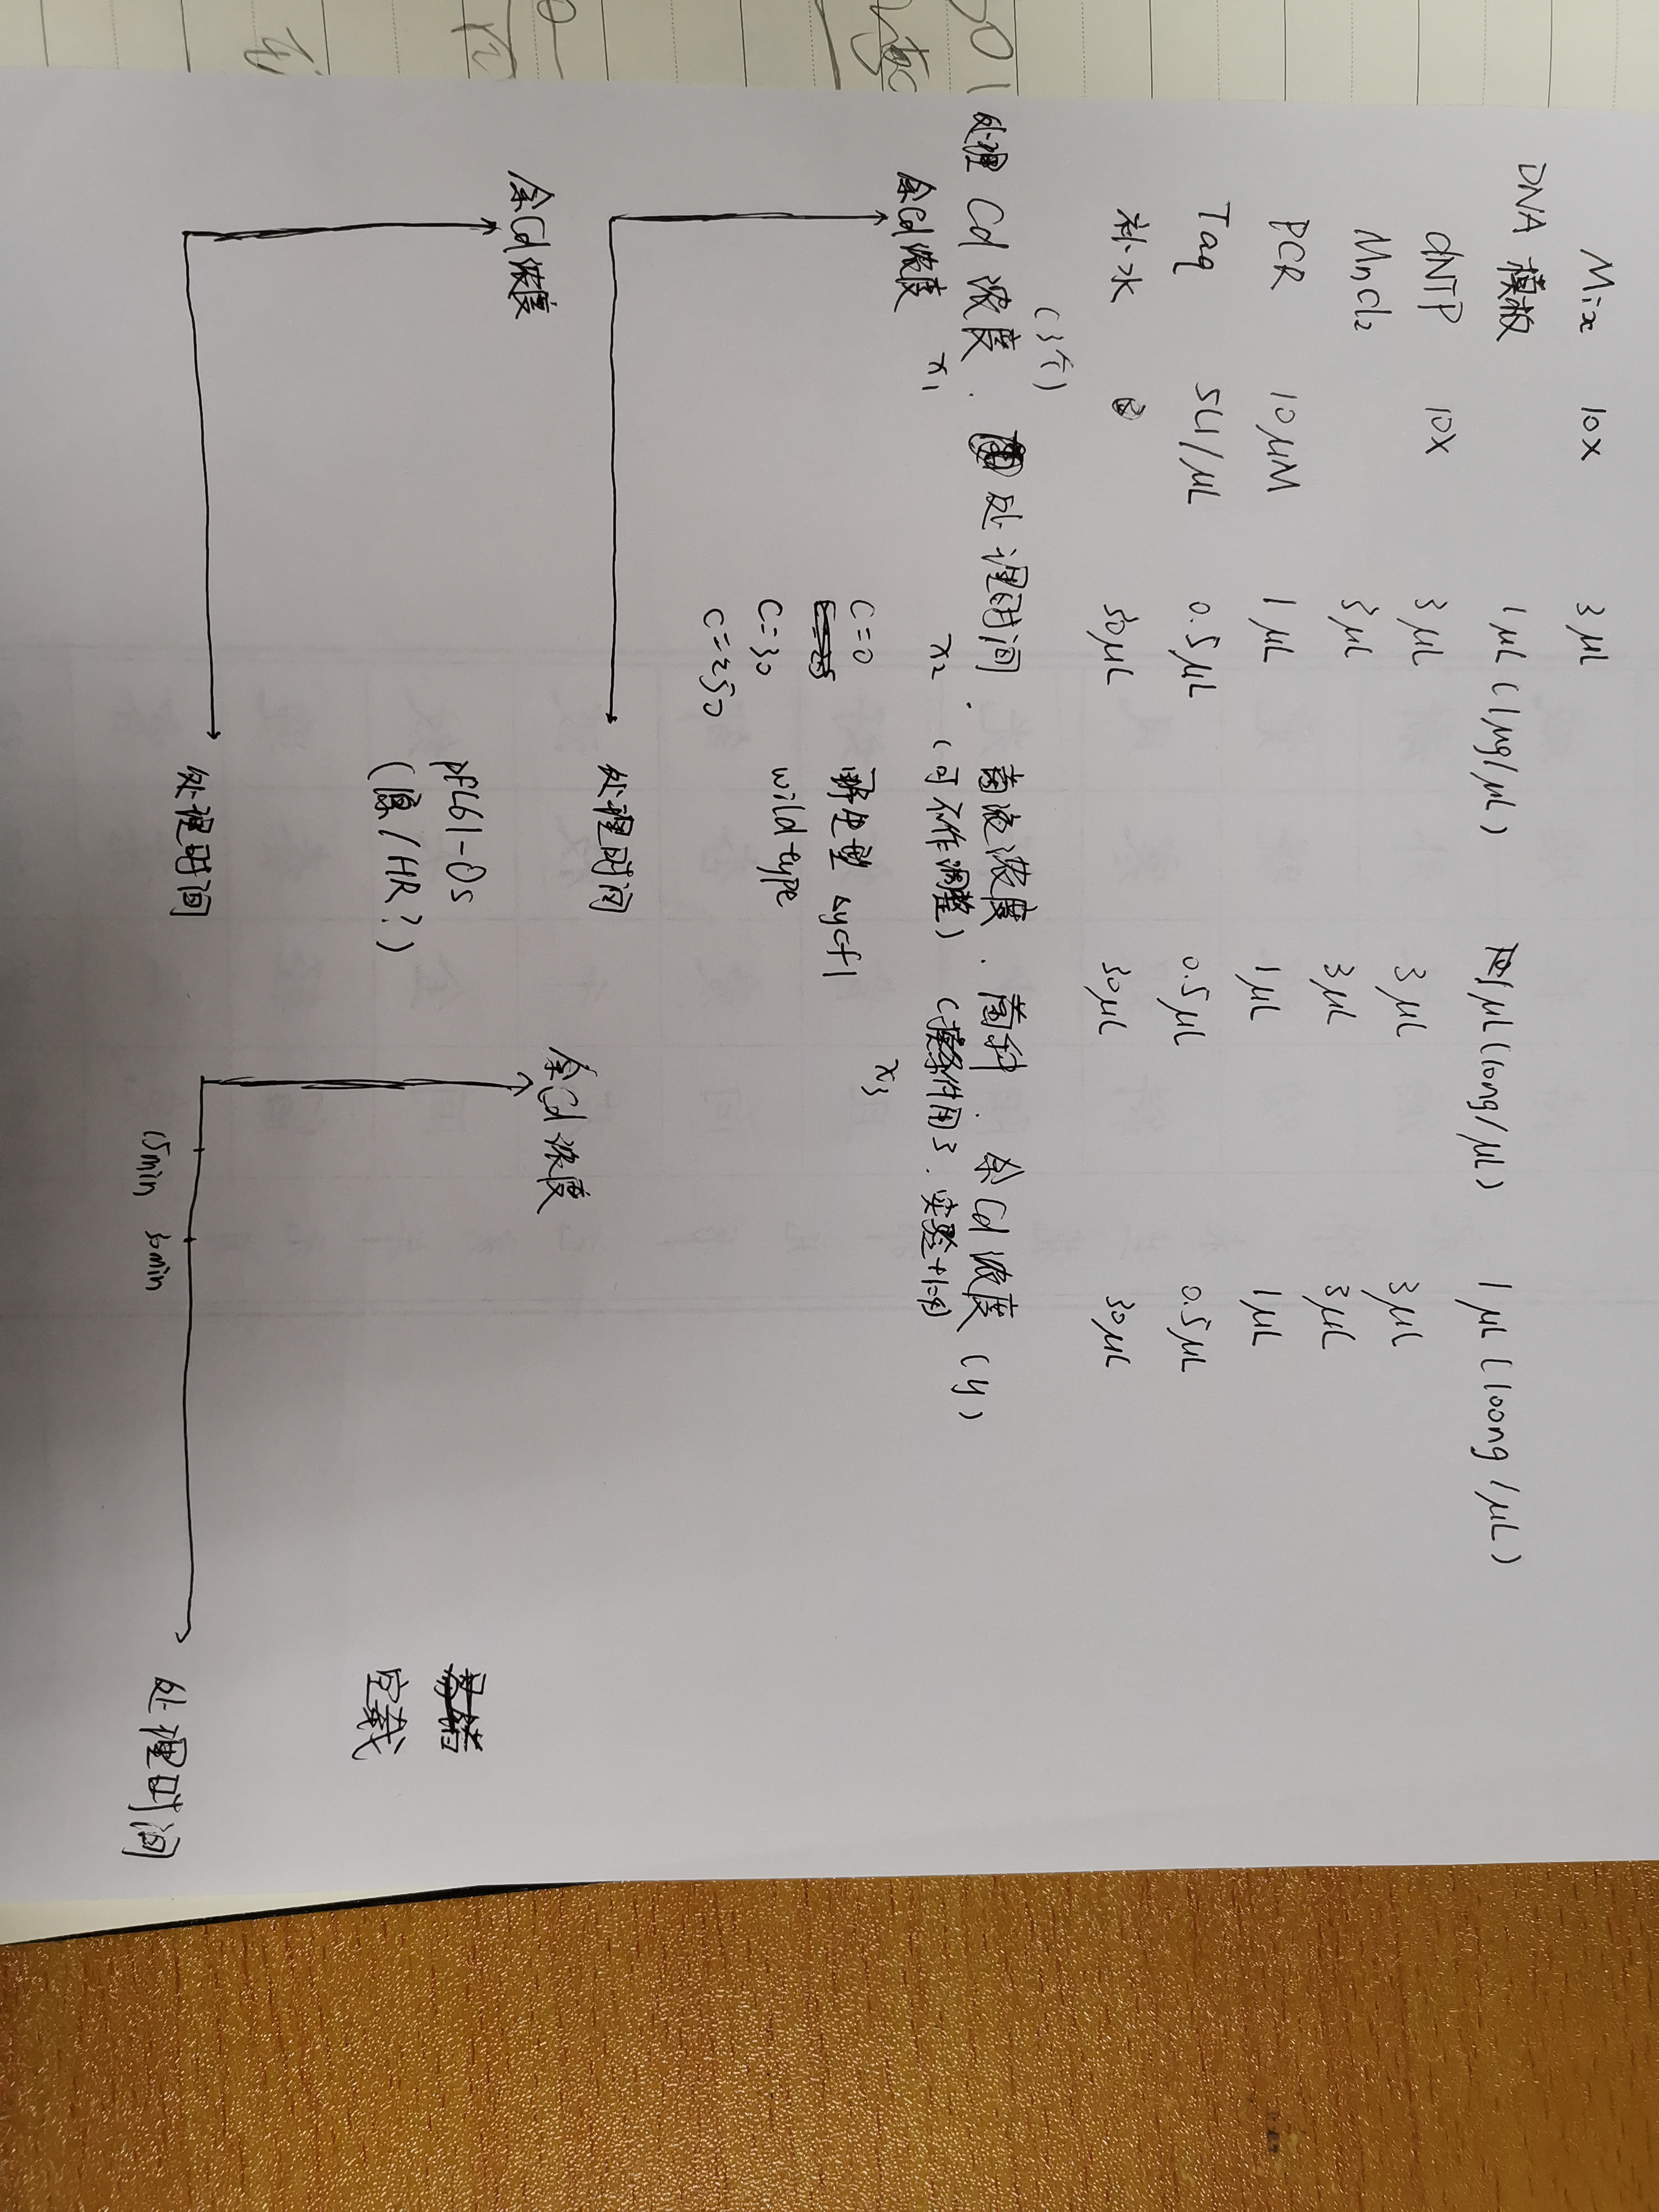 Mix 10X 3μL
DNA 模板 1μL (1μg/μL) 1μL (10ng/μL) 1μL (100ng/μL)
dNTP 10X 3μL 3μL 3μL
MnCl₂ 3μL 3μL 3μL
PCR 10μM 1μL 1μL 1μL
Taq 5U/μL 0.5μL 0.5μL 0.5μL
补水 30μL 30μL 30μL
(3个)
处理Cd浓度. 处理时间. 菌液浓度. 菌种. 余Cd浓度 (y)
x₁ x₂ (可不作调整) x₃
余Cd浓度
C=0
C=30
C=250
野生型 Δycf1
wild type
处理时间
余Cd浓度
pFL61-Os
(原/HR?)
处理时间
余Cd浓度
15min 30min
空载
处理时间